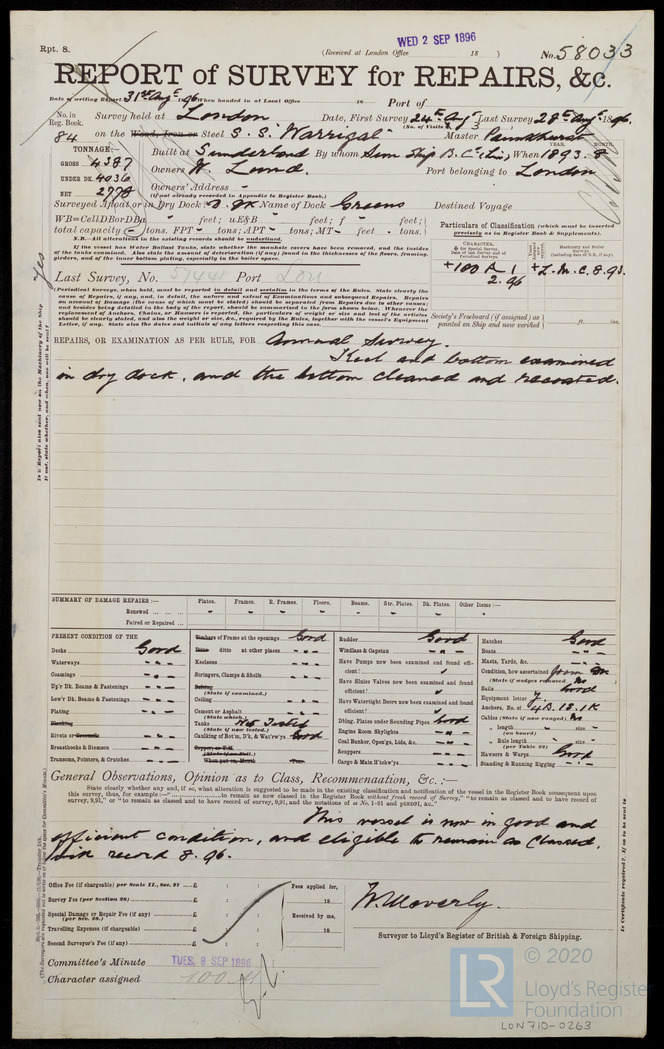 Rpt. 8.
WED 2 SEP 1896
(Received at London Office 18 )
No. 58033
REPORT of SURVEY for REPAIRS, &c.
Date of writing Report 31st Aug 1896 When handed in at Local Office 18 Port of
No. in Reg. Book. Survey held at London Date, First Survey 24th Aug Last Survey 28th Aug 1896.
(No. of Visits 3 )
84 on the Wood, Iron or Steel S.S. "Warrigal" Master
TONNAGE:—
GROSS 4387
UNDER DK. 4036
NET 2778
Built at Sunderland By whom Sun Ship B. Co When 1893. 8
YEAR. MONTH.
Owners W. Lund. Port belonging to London
Owners' Address
(if not already recorded in Appendix to Register Book.)
Surveyed Afloat or in Dry Dock D. Dk Name of Dock Greens Destined Voyage
WB=CellDBorDBa " feet; uE&B " feet; f " feet;
total capacity tons. FPT " tons; APT " tons; MT feet tons.
N.B.—All alterations in the existing records should be underlined.
If the vessel has Water Ballast Tanks, state whether the manhole covers have been removed, and the insides
of the tanks examined. Also state the amount of deterioration (if any) found in the thicknesses of the floors, framing,
girders, and of the inner bottom plating, especially in the boiler space.
Particulars of Classification (which must be inserted
precisely as in Register Book & Supplements).
CHARACTER.
Machinery and Boiler Surveys
(including date of N.B., if any).
+100 A 1
2.96
+L.M.C. 8.93.
Last Survey, No. 57441 Port Lon
(Periodical Surveys, when held, must be reported in detail and seriatim in the terms of the Rules. State clearly the
cause of Repairs, if any, and, in detail, the nature and extent of Examinations and subsequent Repairs. Repairs
on account of Damage (the cause of which must be stated) should be separated from Repairs due to other causes;
and besides being detailed in the body of the report, should be summarised in the form shown below. Whenever the
replacement of Anchors, Chains, or Hawsers is reported, the particulars of weight or size and test of the articles
should be clearly stated, and also the weight or size, &c., required by the Rules, together with the vessel's Equipment
Letter, if any. State also the dates and initials of any letters respecting this case.
Society's Freeboard (if assigned) as
painted on Ship and now verified ft. ins.
REPAIRS, OR EXAMINATION AS PER RULE, FOR Annual Survey.
Keel and bottom examined
in dry dock, and the bottom cleaned and recoated.
Is a Report also sent now on the Machinery of the Ship
If not, state whether, and when, one will be sent?
Yes
SUMMARY OF DAMAGE REPAIRS:— Plates. Frames. R. Frames. Floors. Beams. Str. Plates. Dk. Plates. Other Items:
Renewed
Faired or Repaired
PRESENT CONDITION OF THE
Decks Good
Waterways
Coamings
Up'r Dk. Beams & Fastenings
Low'r Dk. Beams & Fastenings
Plating
Planking
Rivets or Treenails
Breasthooks & Stemson
Transoms, Pointers, & Crutches
Timbers of Frame at the openings Good
Ditto ditto at other places
Keelsons
Stringers, Clamps & Shelfs
Salting
(State if examined.)
Ceiling
Cement or Asphalt
(State which.)
Tanks Not Tested
(State if now tested.)
Caulking of Bot'm, D'k, & Wat'rw'ys. Good
Copper, or Y.M.
When put on, Month
Rudder Good
Windlass & Capstan
Have Pumps now been examined and found efficient?
Have Sluice Valves now been examined and found efficient?
Have Watertight Doors now been examined and found efficient?
Dblng. Plates under Sounding Pipes Good
Engine Room Skylights
Coal Bunker, Open'gs, Lids, &c.
Scuppers
Cargo & Main H'tchw'ys
Hatches Good
Boats
Masts, Yards, &c.
Condition, how ascertained from Dk
(State if wedges removed) No
Sails Good
Equipment letter y
Anchors, No. of 4B. 1S. 1K
Cables (State if now ranged) No
length size
(on board)
Rule length size
(per Table 22)
Hawsers & Warps Good
Standing & Running Rigging
General Observations, Opinion as to Class, Recommendation, &c.:—
State clearly whether any, and if so, what alteration is suggested to be made in the existing classification and notification of the vessel in the Register Book consequent upon
this survey, thus, for example:—" to remain as now classed in the Register Book without fresh record of Survey," "to remain as classed and to have record of
survey, 9,91," or "to remain as classed and to have record of survey, 9,91, and the notations of ss No. 1-91 and ptND91, &c."
This vessel is now in good and
efficient condition, and eligible to remain as Classed,
with record 8.96.
Office Fee (if chargeable) per Scale II., Sec. 27 £ : :
Survey Fee (per Section 28) £ : :
Special Damage or Repair Fee (if any) £ : :
(per Sec. 28.)
Travelling Expenses (if chargeable) £ : :
Second Surveyor's Fee (if any) £ : :
Fees applied for,
18
Received by me,
18
Surveyor to Lloyd's Register of British & Foreign Shipping.
Committee's Minute TUES. 8 SEP 1896
Character assigned 100 A1
Is Certificate required? If so to be sent to
LR
© 2020
Lloyd's Register
Foundation
LON710-0263